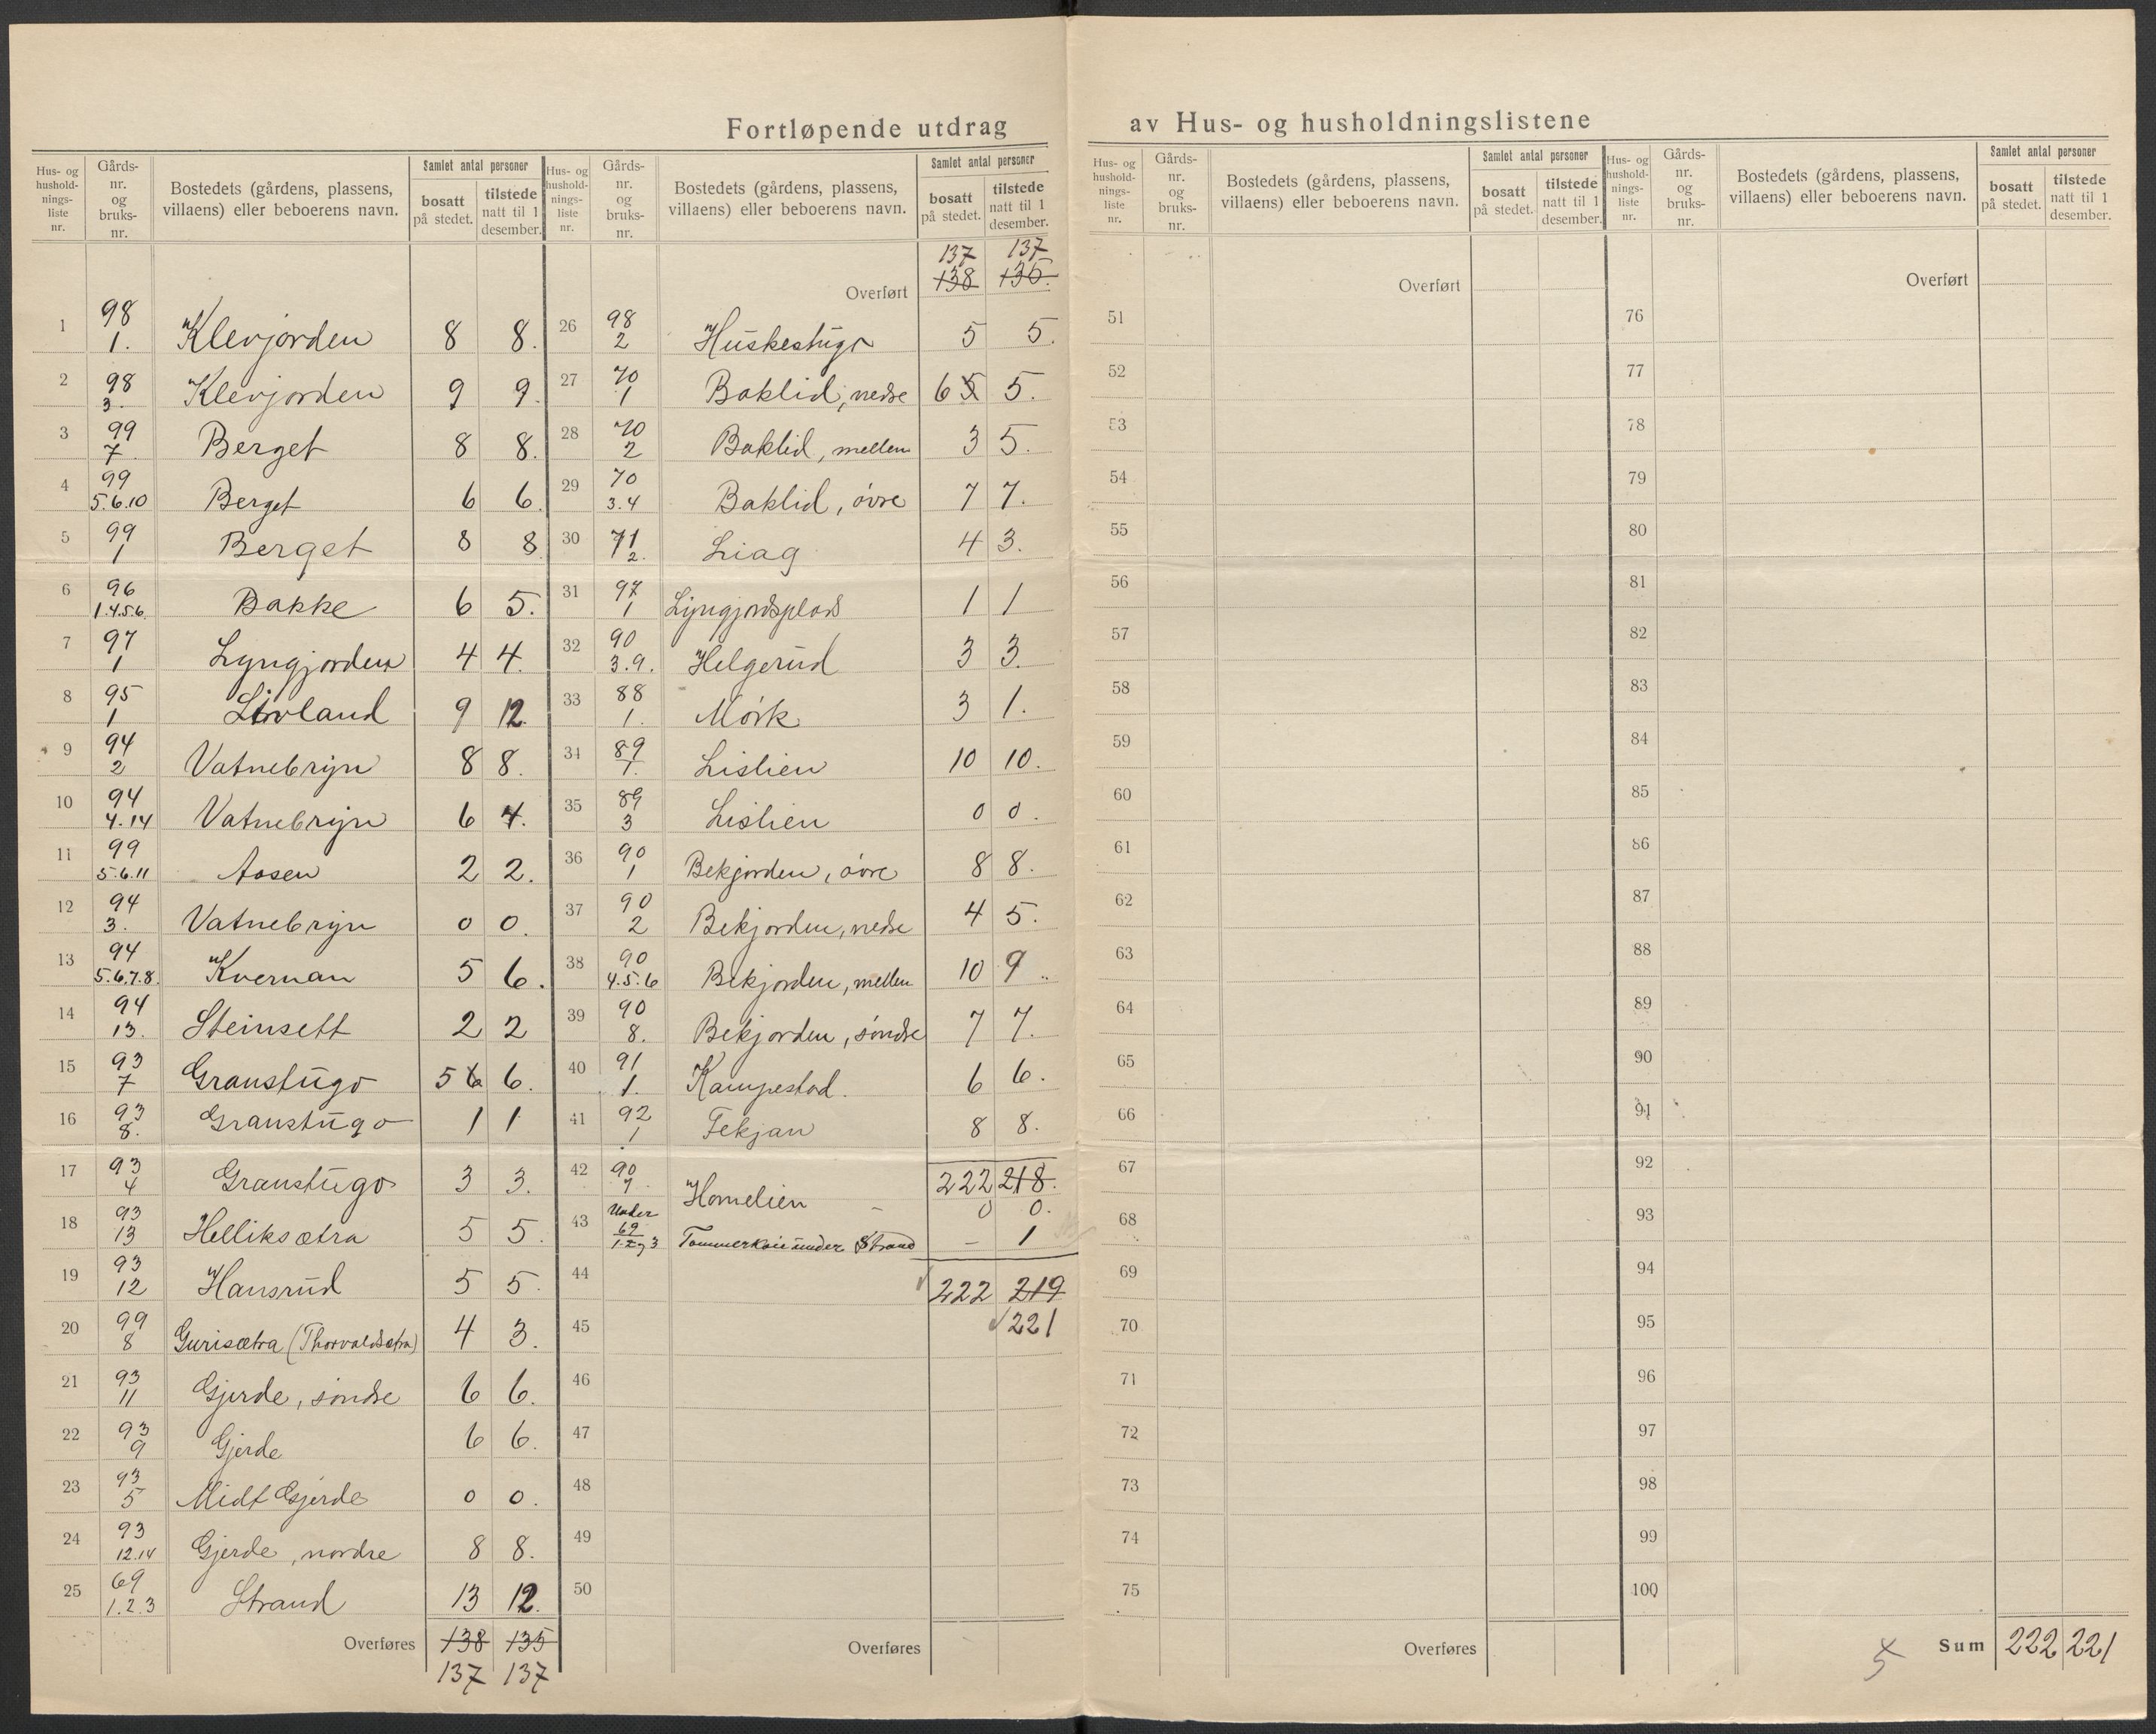 Fortløpende utdrag av Hus- og husholdningslistene
Hus- og husholdnings-liste nr. | Gårds-nr. og bruks-nr. | Bostedets (gårdens, plassens, villaens) eller beboerens navn. | Samlet antal personer | bosatt på stedet. | tilstede natt til 1 desember.
1 98 1. Klevjorden 8 8.
2 98 3. Klevjorden 9 9.
3 99 7 Berget 8 8.
4 99 5.6.10 Berget 6 6.
5 99 1 Berget 8 8
6 96 1.4.5.6. Bakke 6 5.
7 97 1 Lyngjorden 4 4.
8 95 1 Livland 9 12.
9 94 2 Vatnebryn 8 8.
10 94 4.14 Vatnebryn 6 4.
11 99 5.6.11 Aasen 2 2.
12 94 3. Vatnebryn 0 0.
13 94 5.6.7.8. Kvernan 5 6.
14 94 13. Steinsett 2 2
15 93 7 Granstugo 5 6 6.
16 93 8. Granstugo 1 1
17 93 4 Granstugo 3 3.
18 93 13 Helliksætra 5 5.
19 93 12 Hansrud 5 5.
20 99 8 Gurisætra (Thorvaldsætra) 4 3.
21 93 11 Gjerde, søndre 6 6.
22 93 9 Gjerde 6 6.
23 93 5 Midt Gjerde 0 0.
24 93 12.14 Gjerde, nordre 8 8.
25 69 1.2.3 Strand 13 12.
Overføres 138 135
137 137
Hus- og husholdnings-liste nr. | Gårds-nr. og bruks-nr. | Bostedets (gårdens, plassens, villaens) eller beboerens navn. | Samlet antal personer | bosatt på stedet. | tilstede natt til 1 desember.
137 137
Overført 138 135.
26 98 2 Huskestugo 5 5.
27 70 1 Baklid, nedre 6 5 5.
28 70 2 Baklid, mellem 3 5.
29 70 3.4 Baklid, øvre 7 7.
30 71 2. Liag 4 3.
31 97 1 Lyngjordsplads 1 1
32 90 3.9. Helgerud 3 3.
33 88 1. Mørk 3 1.
34 89 1. Lislien 10 10.
35 89 3 Lislien 0 0.
36 90 1 Bekjorden, øvre 8 8.
37 90 2 Bekjorden, nedre 4 5.
38 90 4.5.6 Bekjorden, mellem 10 9
39 90 8. Bekjorden, søndre 7 7.
40 91 1. Kampestad. 6 6.
41 92 1 Fekjan 8 8.
222 218.
42 90 7 Homelien - 0 0.
43 Under 69 1.2 og 3 Tømmerkoie under Strand - 1
44 222 219
45 221
46
47
48
49
50
Overføres
Hus- og husholdnings-liste nr. | Gårds-nr. og bruks-nr. | Bostedets (gårdens, plassens, villaens) eller beboerens navn. | Samlet antal personer | bosatt på stedet. | tilstede natt til 1 desember.
Overført
51
52
53
54
55
56
57
58
59
60
61
62
63
64
65
66
67
68
69
70
71
72
73
74
75
Overføres
Hus- og husholdnings-liste nr. | Gårds-nr. og bruks-nr. | Bostedets (gårdens, plassens, villaens) eller beboerens navn. | Samlet antal personer | bosatt på stedet. | tilstede natt til 1 desember.
Overført
76
77
78
79
80
81
82
83
84
85
86
87
88
89
90
91
92
93
94
95
96
97
98
99
100
Sum 222 221